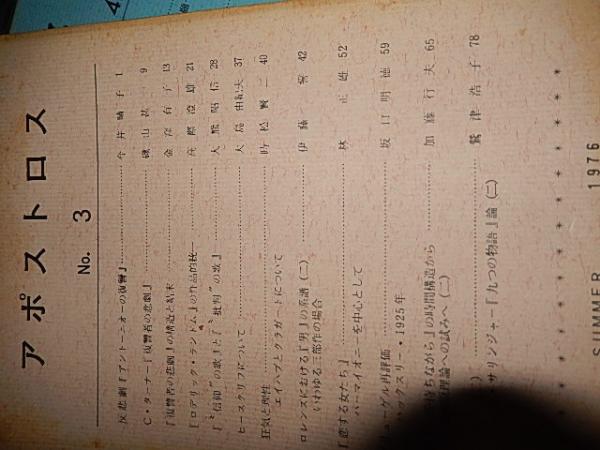 アポストロス
No. 3
反悲劇『アントーニオーの復讐』 今井 晴子 1
C・ターナー『復讐者の悲劇』 磯山 甚一 9
『復讐者の悲劇』の構造と結末 金 有子 13
『ロデリック・ランドム』の作品的統一 21
『“信仰”の歌』と『“批判”の歌』 大熊 昭信 28
ヒースクリフについて 大島 由紀夫 37
狂気と理性 時松 賢二 40
エイハブとクラガートについて
ロレンスにおける『男』の系譜(二) 伊藤 誓 42
いわゆる三部作の場合
『恋する女たち』 林 正雄 52
ハーマイオニーを中心として
リューゲル再評価 坂口 明徳 59
ックスリー・1925年
待ちながら』の時間構造から 加藤 行夫 65
理論への試みへ(二)
サリンジャー『九つの物語』論(二) 鷲津 浩子 78
SUMMER 1976